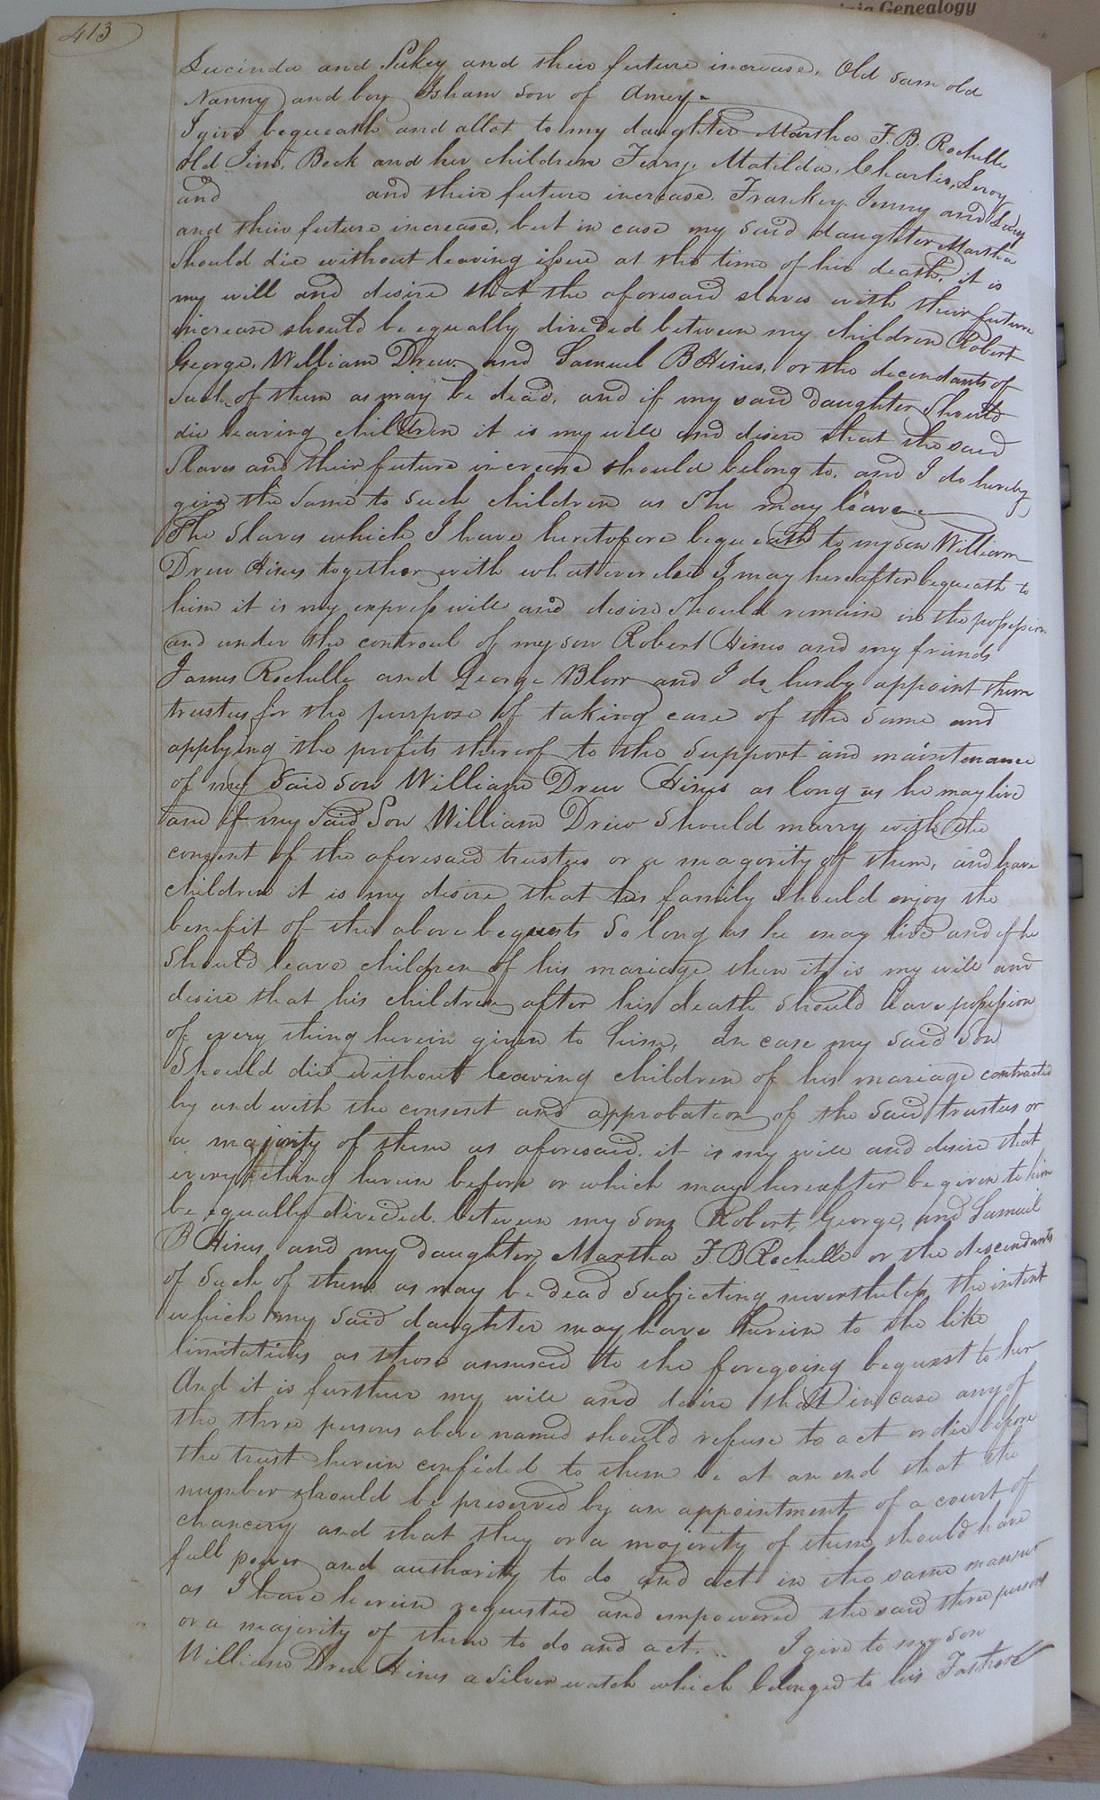 413
Genealogy
Lucinda and Sukey and their future increase, Old Sam old
Nanny and boy Isham son of Amey
I give bequeath and allot to my daughter Martha F. B. Rochelle
old Jim, Beck and her children Terry, Matilda, Charles, Leroy
and and their future increase. Frankey Jenny and Lucy
and their future increase, but in case my said daughter Martha
should die without leaving issue at the time of her death, it is
my will and desire that the aforesaid slaves with their future
increase should be equally divided between my children Robert
George, William Drew, and Samuel B Hines, or the decendants of
such of them as may be dead, and if my said daughter should
die leaving children it is my will and desire that the said
Slaves and their future increase should belong to, and I do hereby
give the same to such children as she may leave
The Slaves which I have heretofore bequeath to my son William
Drew Hines together with whatever else I may hereafter bequeath to
him it is my express will and desire should remain in the possession
and under the controul of my son Robert Hines and my friends
James Rochelle and George Blow and I do hereby appoint them
trustees for the purpose of taking care of the same and
applying the profits thereof to the support and maintenance
of my said son William Drew Hines as long as he may live
and if my said Son William Drew should marry with the
consent of the aforesaid trustees or a magority of them, and have
children it is my desire that his family should enjoy the
benefit of the above bequests so long as he may live and if he
should leave children of his mariage then it is my will and
desire that his children after his death should have possession
of every thing herein given to him, In case my said Son
Should die without leaving children of his mariage contracted
by and with the consent and approbation of the said trustees or
a majority of them as aforesaid, it is my will and desire that
every thing herein before or which may hereafter be given to him
be equally divided between my sons Robert, George, and Samuel
B Hines, and my daughter Martha F B Rochelle or the descendants
of such of them as may be dead subjecting nevertheless the intent
which my said daughter may have therein to the like
limitations as those annexed to the foregoing bequest to her
And it is further my will and desire that in case any of
the three persons above named should refuse to act or die before
the trust herein confided to them be at an end that the
number should be preserved by an appointment of a court of
chancery and that they or a majority of them should have
full power and authority to do and act in the same manner
as I have herein requested and empowered the said three persons
or a majority of them to do and act... I give to my son
William Drew Hines a silver watch which belonged to his